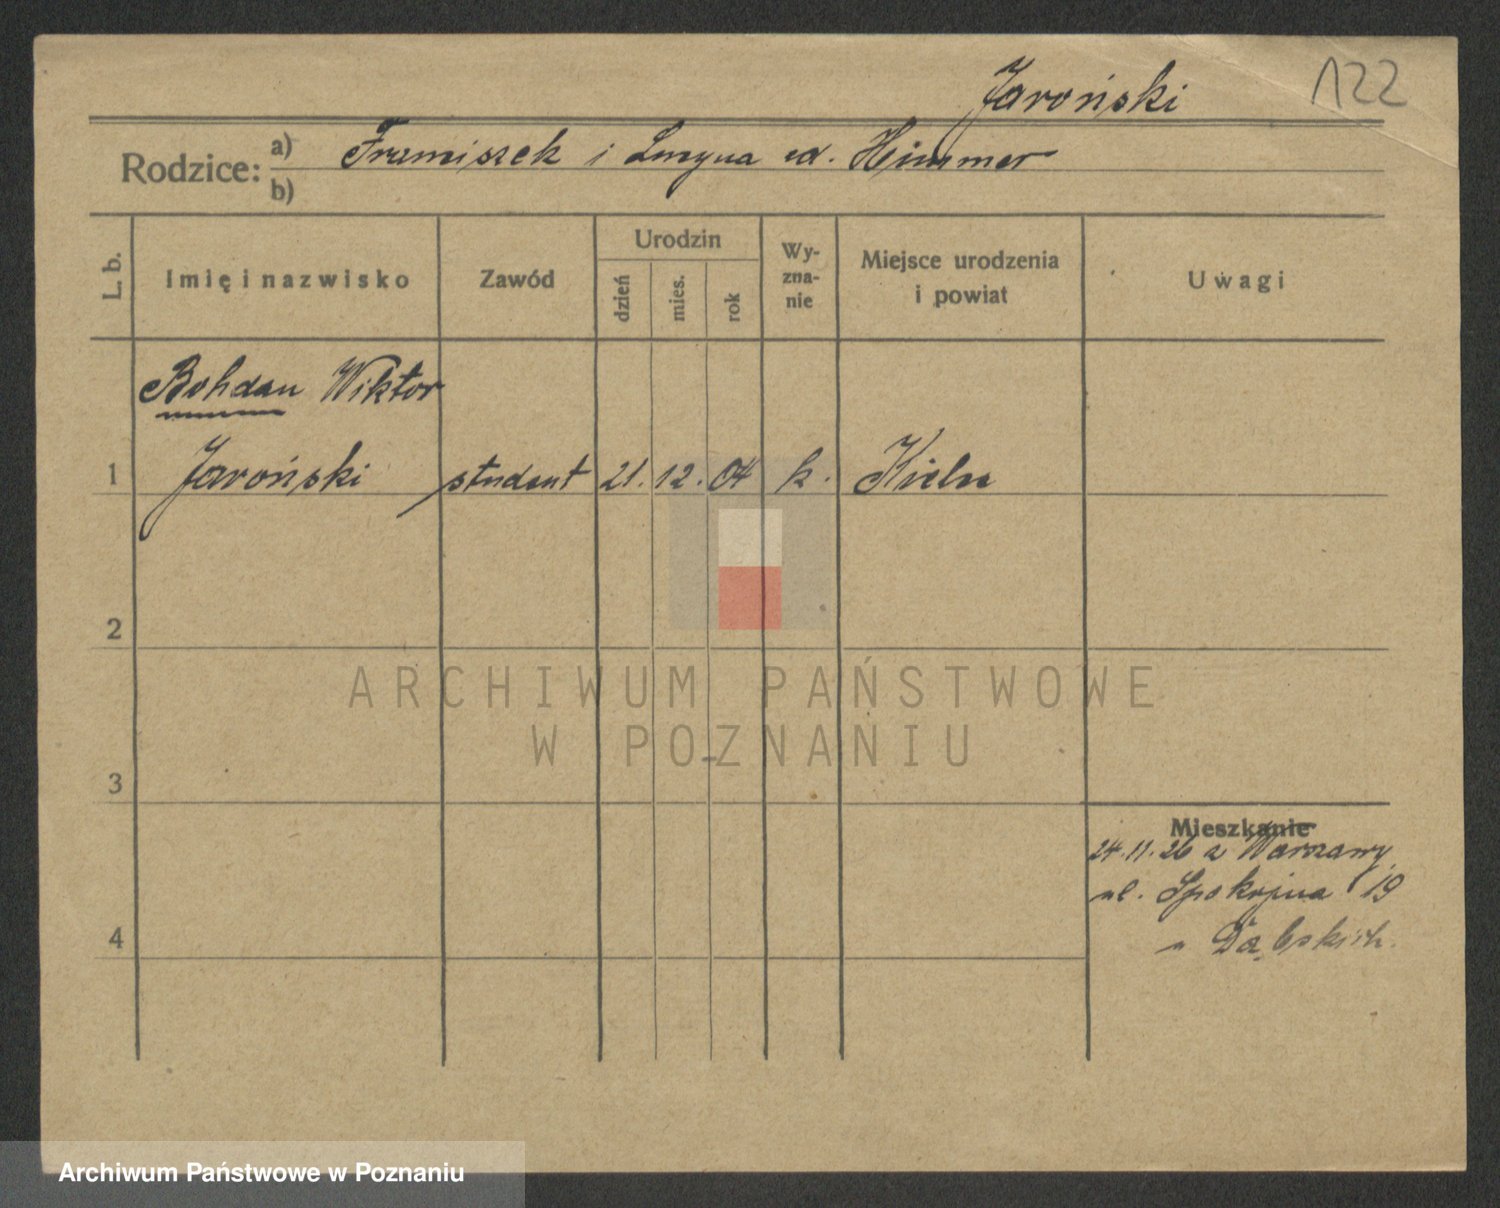 Jaroński
122
Rodzice: a) Franciszek i Lucyna ed. Himmer
b)
L. b. Imię i nazwisko Zawód Urodzin dzień mies. rok Wy-zna-nie Miejsce urodzenia i powiat Uwagi
Bohdan Wiktor
1 Jaroński student 21. 12. 04 k. Kielce
2
ARCHIWUM PAŃSTWOWE
W POZNANIU
3
Mieszkanie
24.11.26 z Warszawy
ul. Spokojna 19
4
Archiwum Państwowe w Poznaniu